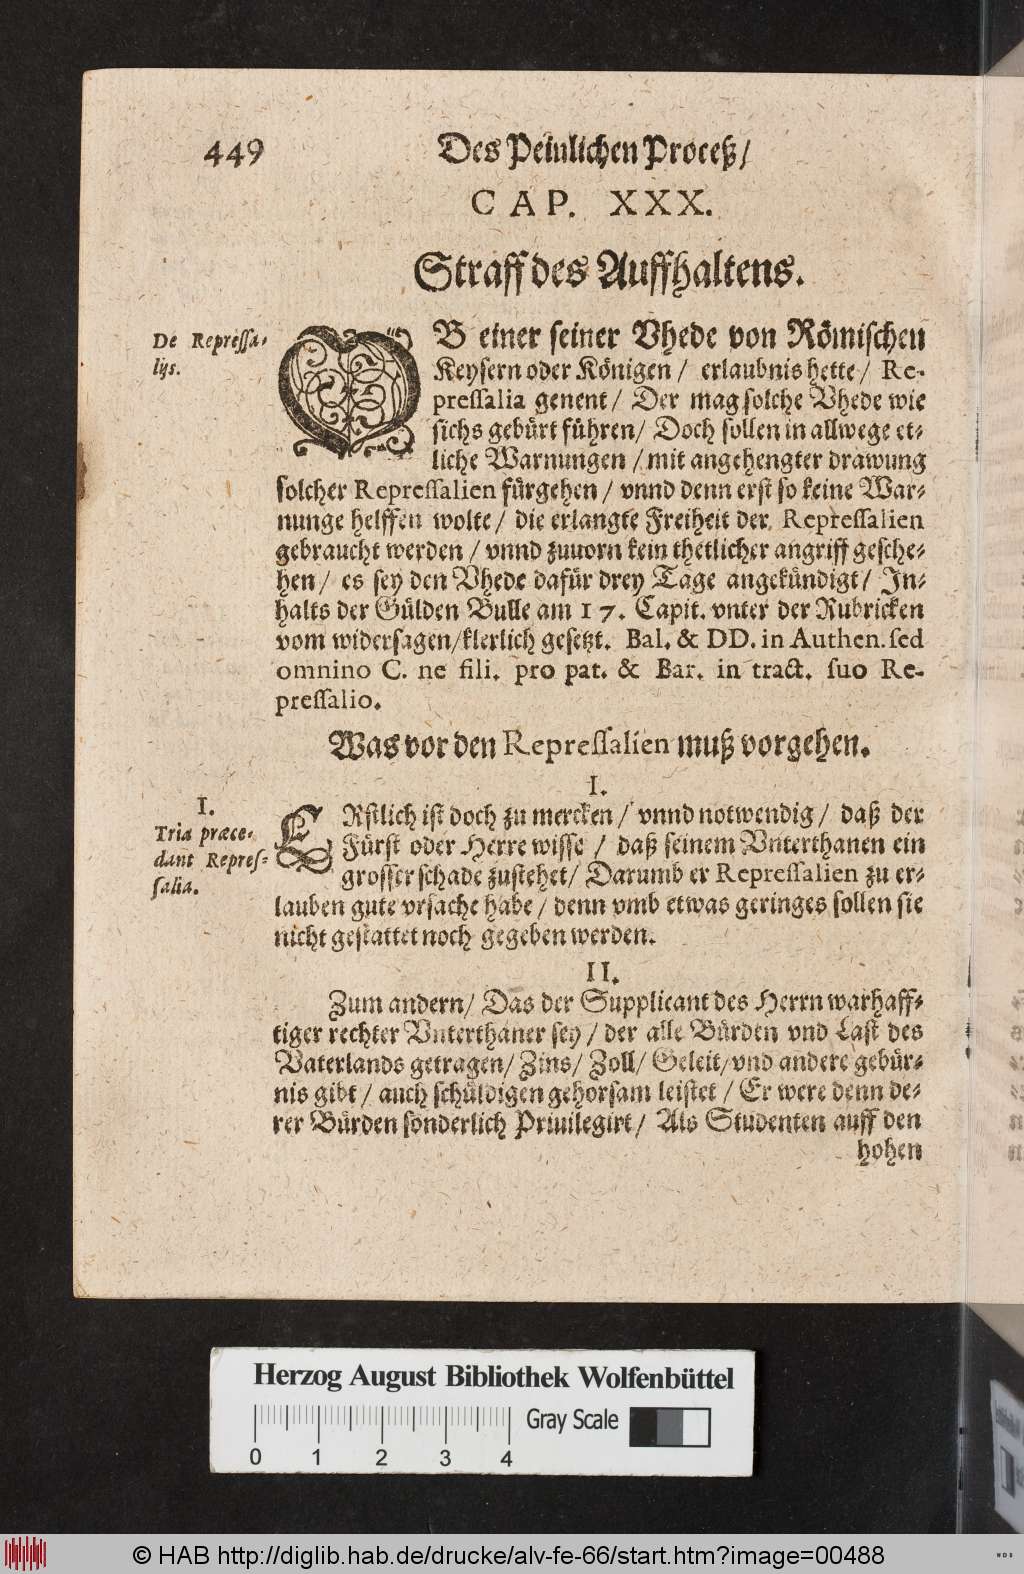 449
Des Peinlichen Proceß/
CAP. XXX.
Straff des Auffhaltens.
De Repressa-
lijs.
OB einer seiner Vhede von Römischen
Keysern oder Königen / erlaubnis hette / Re-
pressalia genent / Der mag solche Vhede wie
sichs gebürt führen / Doch sollen in allwege et-
liche Warnungen / mit angehengter drawung
solcher Repressalien fürgehen / vnnd denn erst so keine War-
nunge helffen wolte / die erlangte Freiheit der Repressalien
gebraucht werden / vnnd zuuorn kein thetlicher angriff gesche-
hen / es sey den Vhede dafür drey Tage angekündigt / In-
halts der Gülden Bulle am 17. Capit. vnter der Rubricken
vom widersagen/klerlich gesetzt. Bal. & DD. in Authen. sed
omnino C. ne fili. pro pat. & Bar. in tract. suo Re-
pressalio.
Was vor den Repressalien muß vorgehen.
I.
I.
Tria præce-
dant Repres-
salia.
ERstlich ist doch zu mercken / vnnd notwendig / daß der
Fürst oder Herre wisse / daß seinem Vnterthanen ein
grosser schade zustehet / Darumb er Repressalien zu er-
lauben gute vrsache habe / denn vmb etwas geringes sollen sie
nicht gestattet noch gegeben werden.
II.
Zum andern / Das der Supplicant des Herrn warhaff-
tiger rechter Vnterthaner sey / der alle Bürden vnd Last des
Vaterlands getragen / Zins / Zoll / Geleit / vnd andere gebür-
nis gibt / auch schüldigen gehorsam leistet / Er were denn de-
rer Bürden sonderlich Priuilegirt / Als Studenten auff den
hohen
Herzog August Bibliothek Wolfenbüttel
Gray Scale
0 1 2 3 4
© HAB http://diglib.hab.de/drucke/alv-fe-66/start.htm?image=00488